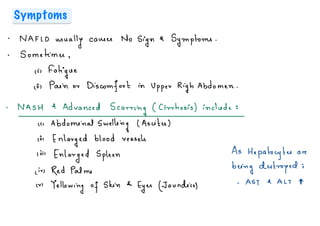 Symptoms
· NAFLD usually causes No Sign & Symptoms.
· Sometimes,
(i) Fatigue
(ii) Pain or Discomfort in Upper Righ Abdomen.
· NASH & Advanced Scarring (Cirrhosis) include:
(i) Abdominal Swelling (Ascites)
(ii) Enlarged blood vessels
(iii) Enlarged Spleen
(iv) Red Palms
(v) Yellowing of Skin & Eyes (Jaundice)
As Hepatocytes are
being destroyed:
. AST & ALT ↑